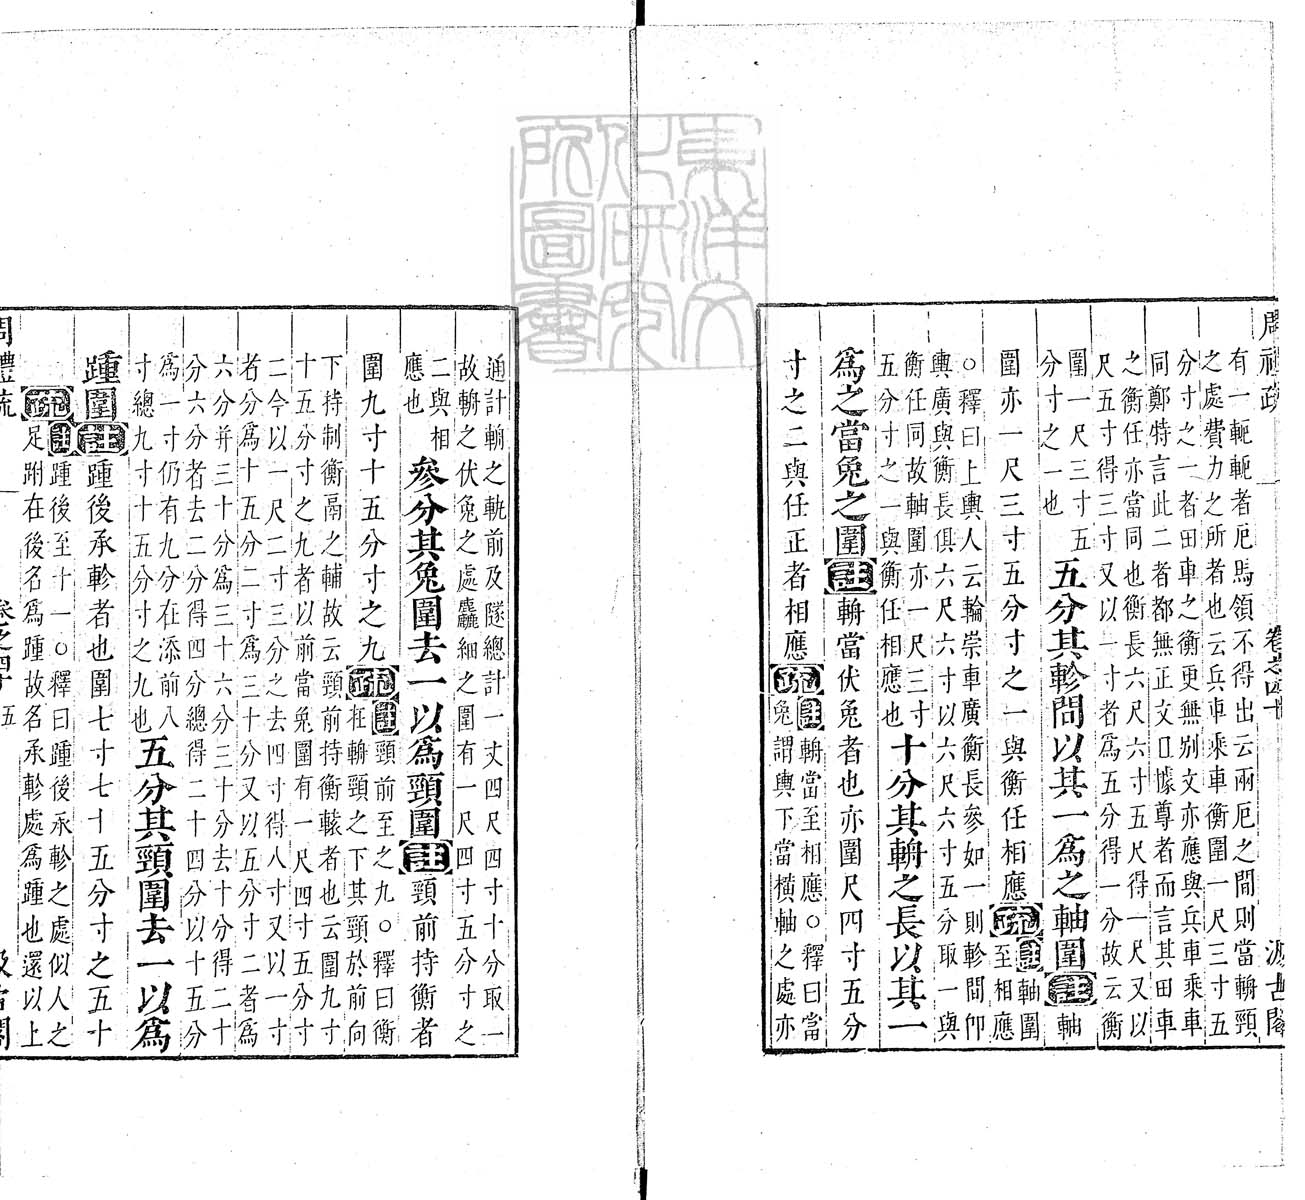 周禮疏
卷之四十
汲古閣
有一軛軛者厄馬領不得出云兩厄之間則當輈頸
之處費力之所者也云兵車乘車衡圍一尺三寸五
分寸之一者田車之衡更無別文亦應與兵車乘車
同鄭特言此二者都無正文且據尊者而言其田車
之衡任亦當同也衡長六尺六寸五尺得一尺又以
尺五寸得三寸又以一寸者為五分得一分故云衡
圍一尺三寸五
分寸之一也
五分其軫間以其一為之軸圍註軸
圍亦一尺三寸五分寸之一與衡任相應疏註軸圍
至相應
○釋曰上輿人云輪崇車廣衡長參如一則軫間仰
輿廣與衡長俱六尺六寸以六尺六寸五分取一與
衡任同故軸圍亦一尺三寸
五分寸之一與衡任相應也
十分其輈之長以其一
為之當兔之圍註輈當伏兔者也亦圍尺四寸五分
寸之二與任正者相應疏註輈當至相應○釋曰當
兔謂輿下當橫軸之處亦
通計輈之軓前及隧總計一丈四尺四寸十分取一
故輈之伏兔之處麤細之圍有一尺四寸五分寸之
二與相
應也
參分其兔圍去一以為頸圍註頸前持衡者
圍九寸十五分寸之九疏註頸前至之九○釋曰衡
在輈頸之下其頸於前向
下持制衡鬲之輔故云頸前持衡轅者也云圍九寸
十五分寸之九者以前當兔圍有一尺四寸五分寸
二今以一尺二寸三分之去四寸得八寸又以一寸
者分為十五分二寸為三十分又以五分寸二者為
六分并三十分為三十六分三十分去十分得二十
分六分者去二分得四分總得二十四分以十五分
為一寸仍有九分在添前八
寸總九寸十五分寸之九也
五分其頸圍去一以為
踵圍註踵後承軫者也圍七寸七十五分寸之五十
疏註踵後至十一○釋曰踵後承軫之處似人之
足跗在後名為踵故名承軫處為踵也還以上
周禮疏
卷之四十
五
汲古閣